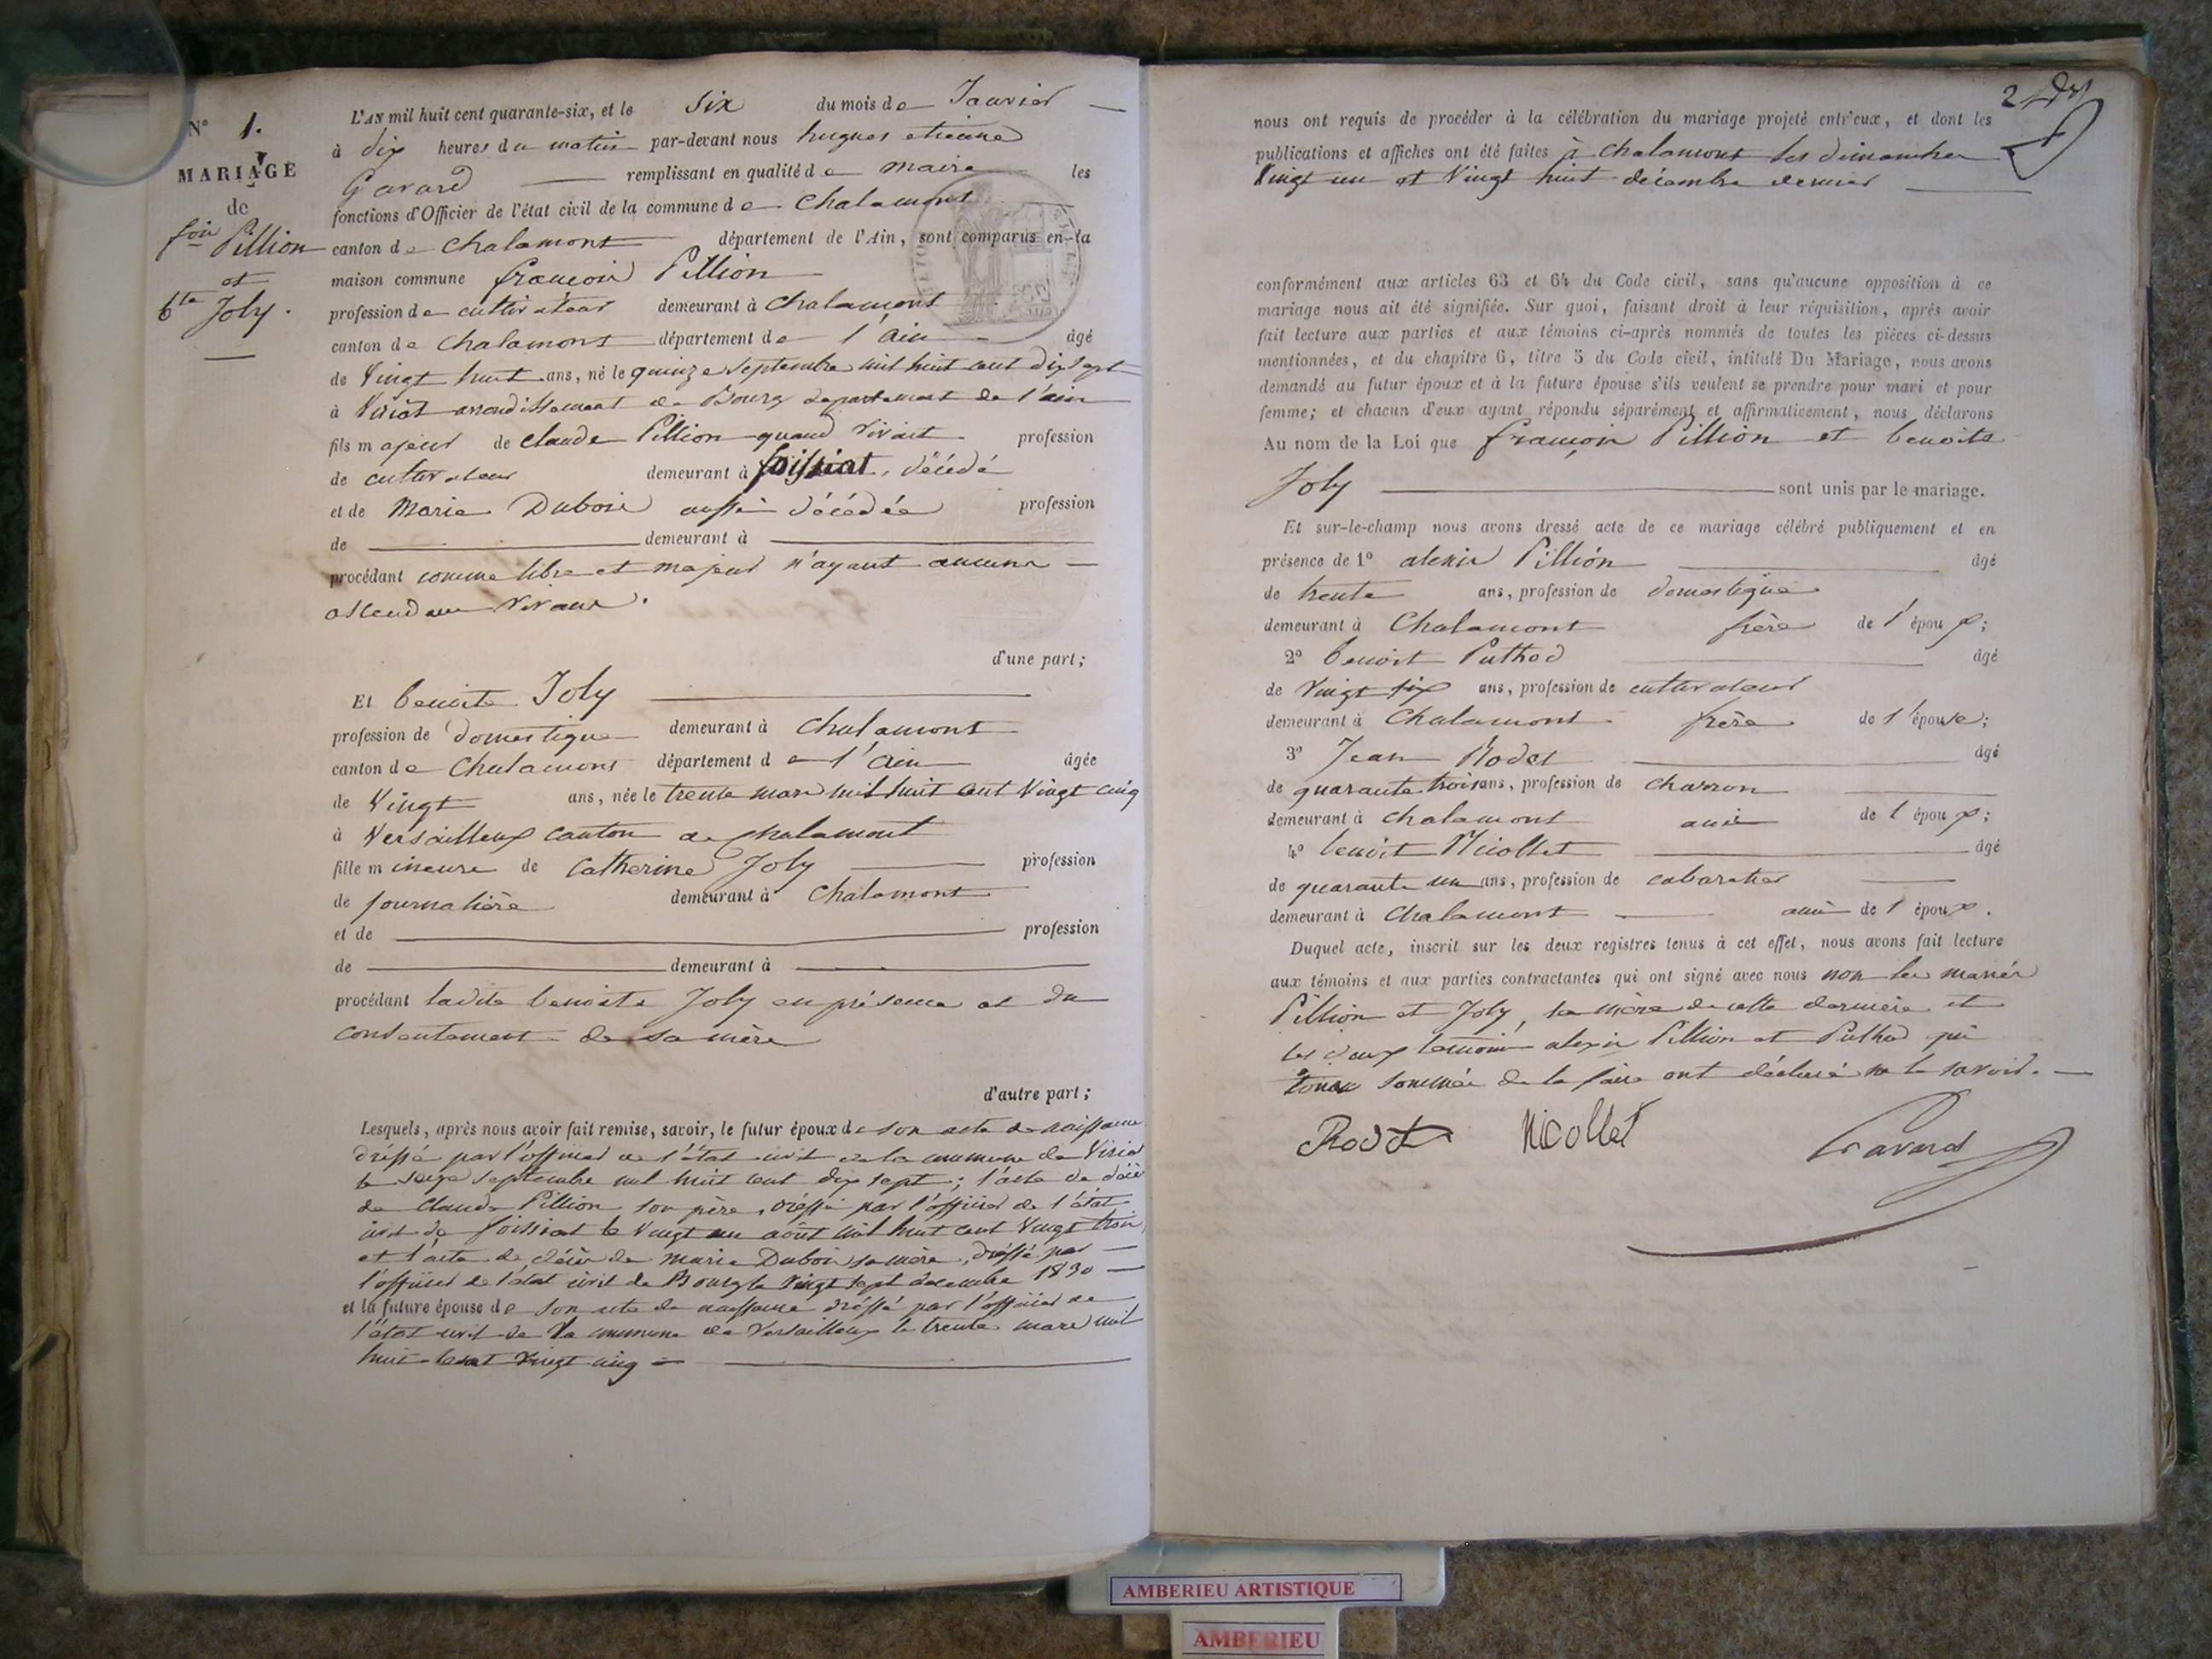 N° 1.
MARIAGE
de
fois Pillion
et
bte Joly.
L'AN mil huit cent quarante-six, et le six du mois de Janvier
à dix heures du matin par-devant nous hugues etienne
Gavard remplissant en qualité de maire les
fonctions d'Officier de l'état civil de la commune de Chalamont
canton de Chalamont département de l'Ain, sont comparus en la
maison commune françois Pillion
profession de cultivateur demeurant à Chalamont
canton de Chalamont département de l'ain âgé
de Vingt huit ans, né le quinze septembre mil huit cent dix sept
à Viriat arrondissement de Bourg departement de l'ain
fils majeur de claude Pillion quand vivait profession
de cultivateur demeurant à foissiat, décédé
et de Marie Dubois aussi décédée profession
de demeurant à
procédant comme libre et majeur n'ayant aucuns
ascendans vivans.
d'une part;
Et benoite Joly
profession de domestique demeurant à Chalamont
canton de Chalamont département de l'ain âgée
de Vingt ans, née le trente mars mil huit cent Vingt cinq
à Versailleux canton de chalamont
fille mineure de Catherine Joly profession
de journalière demeurant à Chalamont
et de profession
de demeurant à
procédant ladite benoite Joly en présence et du
consentement de sa mère
d'autre part;
Lesquels, après nous avoir fait remise, savoir, le futur époux de son acte de naissance
dréssé par l'officier de l'état civil de la commune de Viriat
le seize septembre mil huit cent dix sept; l'acte de décès
de Claude Pillion son père, dréssé par l'officier de l'état
civil de foissiat le Vingt un août mil huit cent Vingt trois
et l'acte de décès de Marie Dubois sa mère, dréssé par
l'officier de l'état civil de Bourg le Vingt sept décembre 1830
et la future épouse de son acte de naissance dréssé par l'officier de
l'état civil de la commune de Versailleux le trente mars mil
huit cent Vingt cinq
2
nous ont requis de procéder à la célébration du mariage projeté entr'eux, et dont les
publications et affiches ont été faites à Chalamont les dimanches
Vingt un et Vingt huit décembre dernier
conformément aux articles 63 et 64 du Code civil, sans qu'aucune opposition à ce
mariage nous ait été signifiée. Sur quoi, faisant droit à leur réquisition, après avoir
fait lecture aux parties et aux témoins ci-après nommés de toutes les pièces ci-dessus
mentionnées, et du chapitre 6, titre 5 du Code civil, intitulé Du Mariage, nous avons
demandé au futur époux et à la future épouse s'ils veulent se prendre pour mari et pour
femme; et chacun d'eux ayant répondu séparément et affirmativement, nous déclarons
Au nom de la Loi que françois Pillion et benoite
Joly sont unis par le mariage.
Et sur-le-champ nous avons dressé acte de ce mariage célébré publiquement et en
présence de 1° alexis Pillion âgé
de trente ans, profession de domestique
demeurant à Chalamont frère de l'époux;
2° benoit Puthod âgé
de Vingt six ans, profession de cultivateur
demeurant à Chalamont frère de l'épouse;
3° Jean Rodet âgé
de quarante trois ans, profession de charron
demeurant à Chalamont ami de l'époux;
4° benoit Nicollet âgé
de quarante un ans, profession de cabaretier
demeurant à Chalamont ami de l'époux.
Duquel acte, inscrit sur les deux registres tenus à cet effet, nous avons fait lecture
aux témoins et aux parties contractantes qui ont signé avec nous non les mariés
Pillion et Joly, la mère de cette dernière et
les deux témoins alexis Pillion et Puthod qui
tous sommés de le faire ont déclaré ne le savoir.
Rodet Nicollet Gavard
AMBERIEU ARTISTIQUE
AMBERIEU